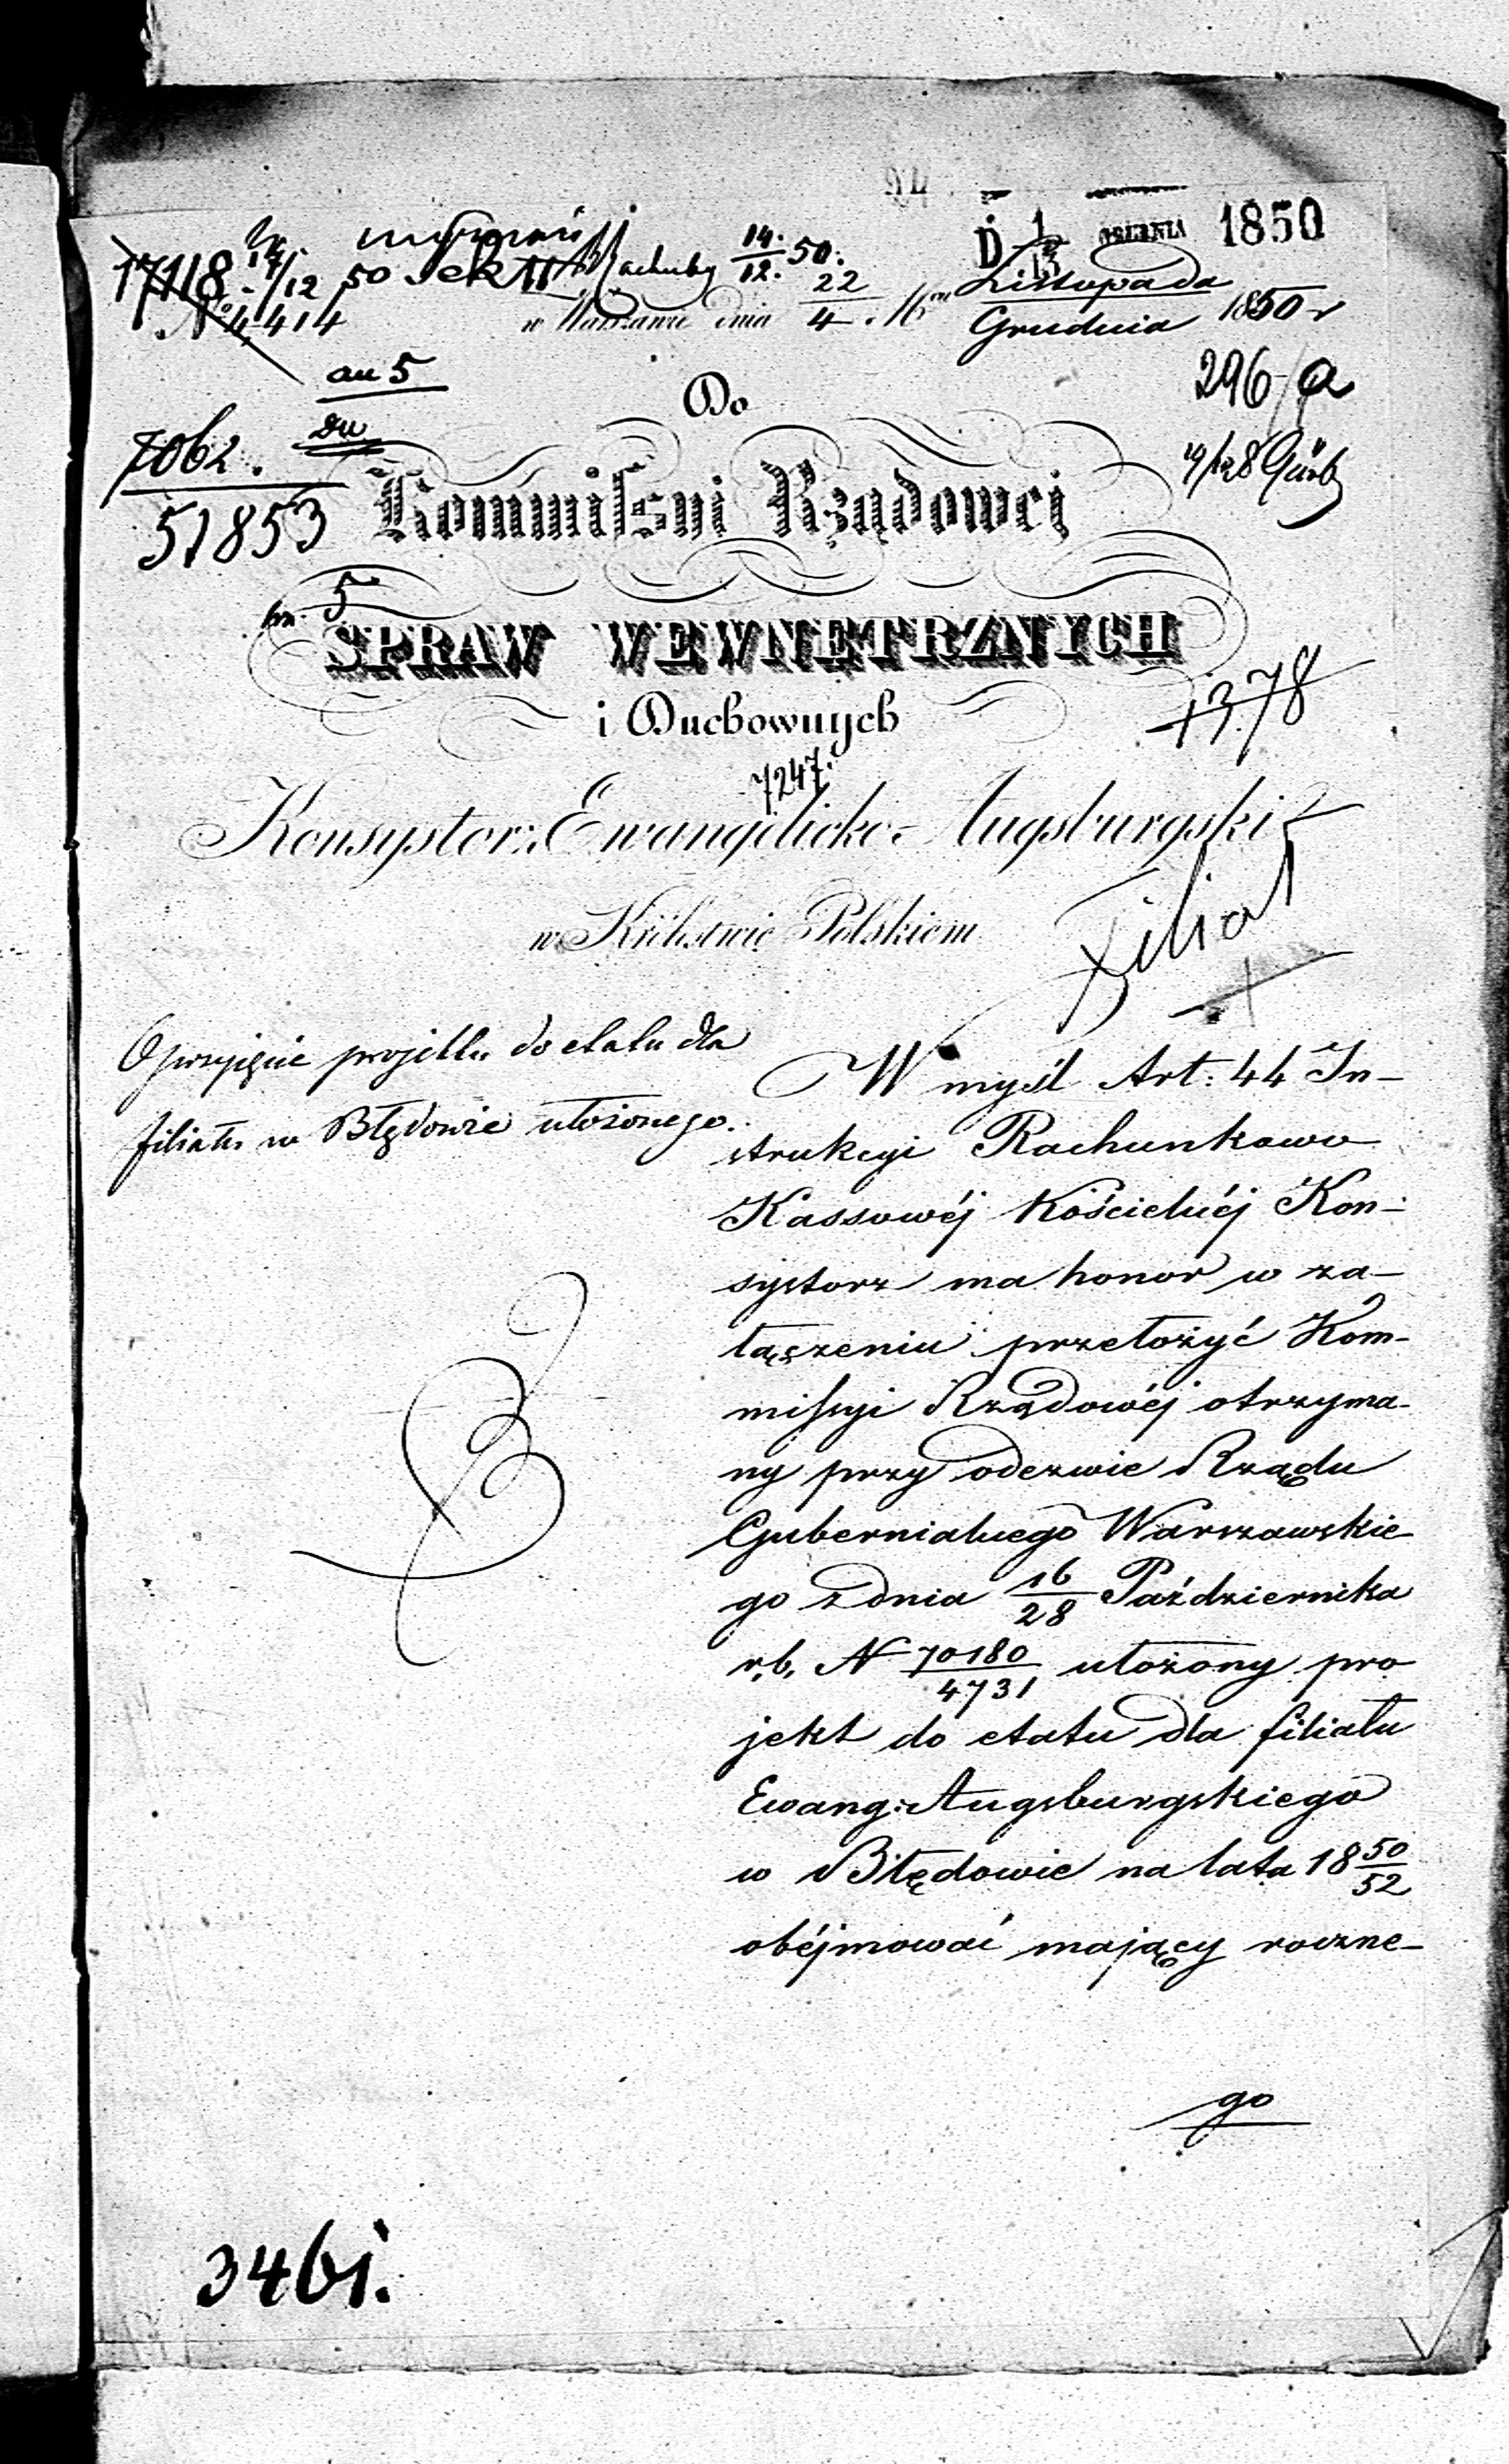 D. 1/13 GRUDNIA 1850
17118 14/12 50 Sekt II Rachuby 14/12. 50.
№ 4414 w Warszawie dnia 22/4 . 16 Listopada/Grudnia 1850 r
au 5
296/a
Do
7062.
51853
Kommissni Rządowej
5
SPRAW WEWNĘTRZNYCH
1378
i Duchownych
7247.
Konsystorz Ewangelicko-Augsburgski
w Królestwie Polskiem
Filiał
O przyjęcie projektu do etatu dla
filiału w Błędowie ułożonego.
W myśl Art: 44 In-
strukcyi Rachunkowo
Kassowéj Kościelnéj Kon-
systorz ma honor w za-
łączeniu przełożyć Kom-
missyi Rządowéj otrzyma-
ny przy odezwie Rządu
Gubernialnego Warszawskie
go z dnia 16/28 Października
r.b. N 70180/4731 ułożony pro
jekt do etatu dla filiału
Ewang: Augsburgskiego
w Błędowie na lata 18 50/52
obéjmować mający roczne-
go
346i.